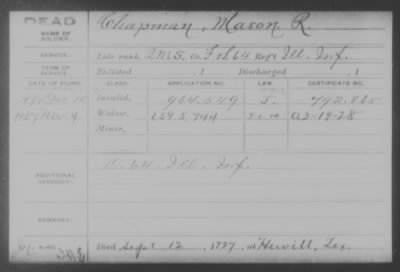 DEAD
NAME OF SOLDIER:
Chapman, Mason R.
SERVICE:
Late rank, Q.M.S. Co. F&S, 64 Reg't Ill. Inf.
TERM OF SERVICE
Enlisted , 1 Discharged , 1
DATE OF FILING
CLASS.
APPLICATION NO.
LAW
CERTIFICATE NO.
Invalid,
964.549
J.
792.865
1927 Nov 9
Widow,
1595.744
A3-19-28
Minor,
ADDITIONAL SERVICES:
64 Ill. Inf.
REMARKS:
Died Sept 12, 1927, at Hewitt, Tex.